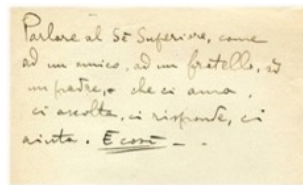 Parlare al Sé Superiore, come
ad un amico, ad un fratello, ad
un padre, che ci ama,
ci ascolta, ci risponde, ci
aiuta. E così - -